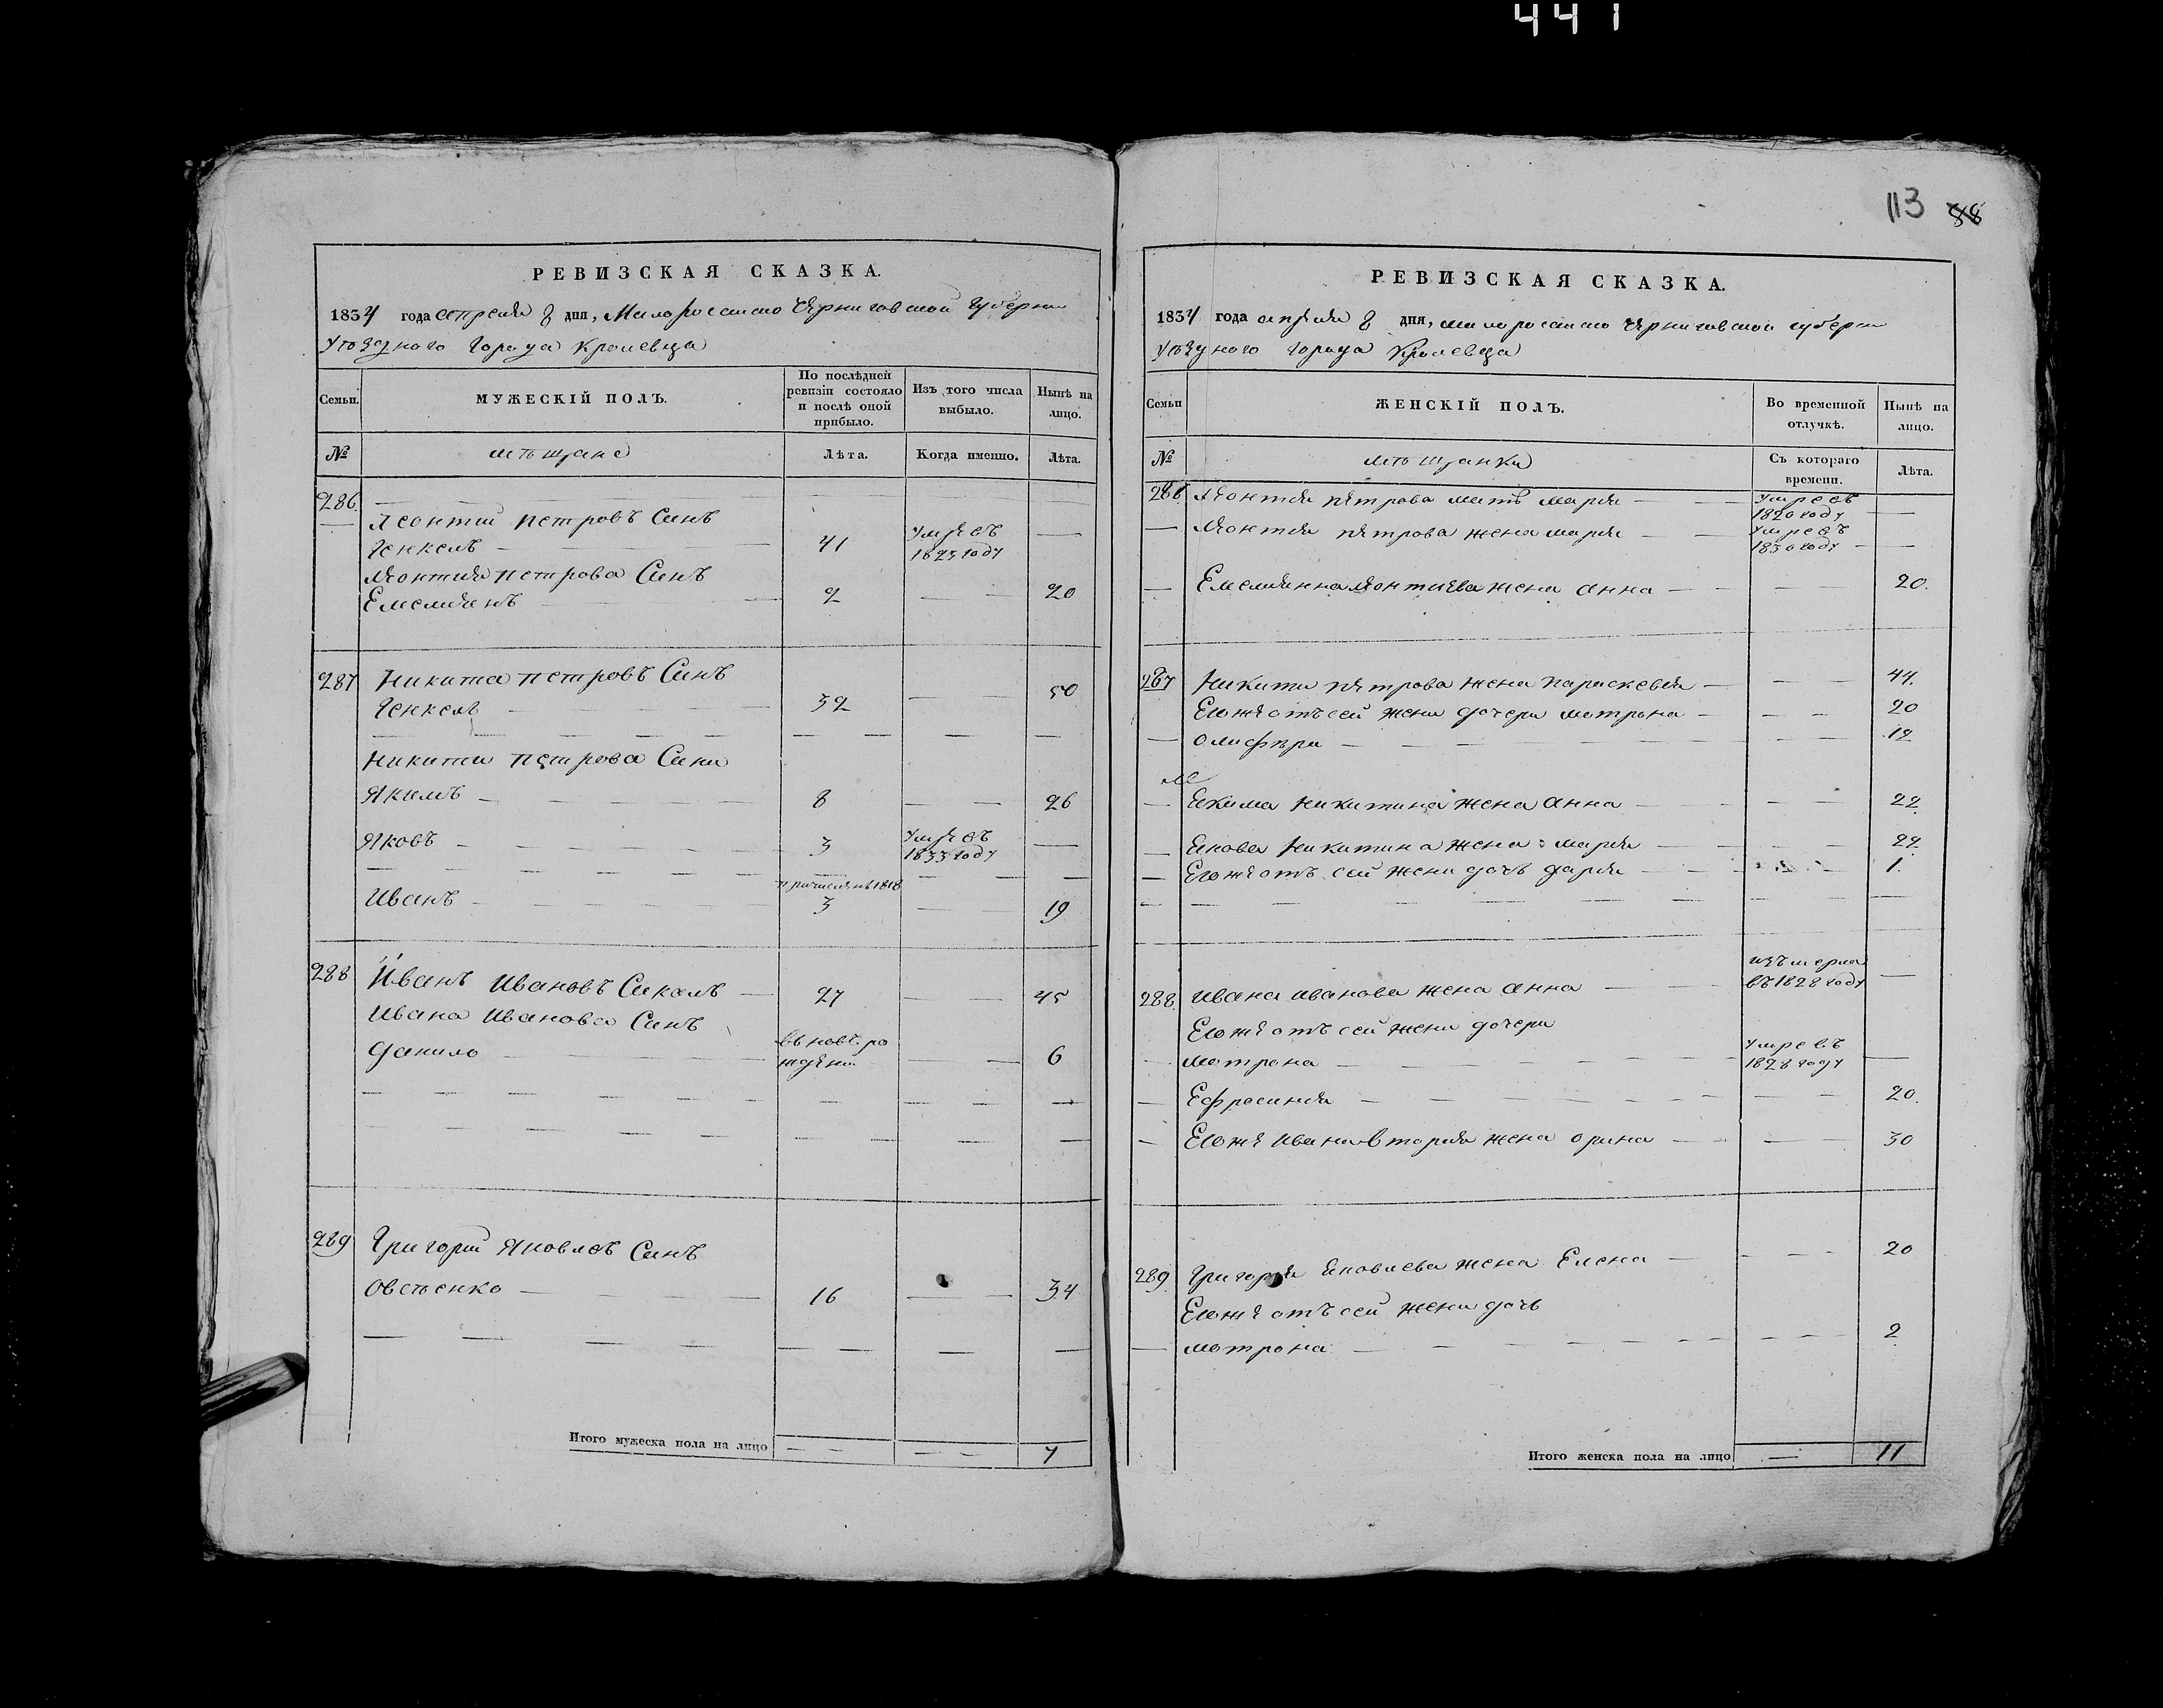 441
113 88
РЕВИЗСКАЯ СКАЗКА.
1834 года апреля 8 дня, Малоросийско Черниговской Губерни
уѣздного города Кролевца
Семьи.
МУЖЕСКІЙ ПОЛЪ.
По послѣдней ревизіи состояло и послѣ оной прибыло.
Изъ того числа выбыло.
Нынѣ на лицо.
№
мѣщане
Лѣта.
Когда именно.
Лѣта.
286.
Леонтий петровъ Синъ
Генкель — 41 умре въ 1823 году —
Леонтия петрова Синъ
Емелиянъ — 2 — 20
287 Никита петровъ Синъ
Генкель — 32 — 50
Никити петрова Сини
Якимъ — 8 — 26
Яковъ — 3 умре въ 1833 году —
причисленъ 1818
Иванъ — 3 — 19
288 Иванъ Ивановъ Сикалъ — 27 — 45
Ивана Иванова Синъ
Данило — въ новь рождени — 6
289 Григорий Яковлевъ Синъ
Овсѣенко — 16 — 34
Итого мужеска пола на лицо — — 7
РЕВИЗСКАЯ СКАЗКА.
1834 года апреля 8 дня, малоросийско Черниговской губерни
уѣздного города Кролевца
Семьи
ЖЕНСКІЙ ПОЛЪ.
Во временной отлучкѣ.
Нынѣ на лицо.
№
мѣщанки
Съ котораго времени.
Лѣта.
286. Леонтия петрова мать мария — умре въ 1820 году —
— Леонтия петрова жена мария — умре въ 1830 году —
— Емелияна леонтиева жена анна — — 20.
287 Никити петрова жена параскевия — — 44.
Егоже отъ сей жени дочери мотрона — — 20
— олифѣра — — 12
— Екима Никитина жена анна — — 22
— Якова Никитина жена мария — — 22
— Егоже отъ сей жени дочь дария — — 1.
288. Ивана иванова жена анна — изъмерла въ 1828 году —
Егоже отъ сей жени дочери
мотрона — умре въ 1828 году —
— Ефросиния — — 20.
— Егоже Ивана вторая жена орина — — 30
289. Григория Яковлева жена Елена — — 20
Егоже отъ сей жени дочь
— мотрона — — 2
Итого женска пола на лицо — 11